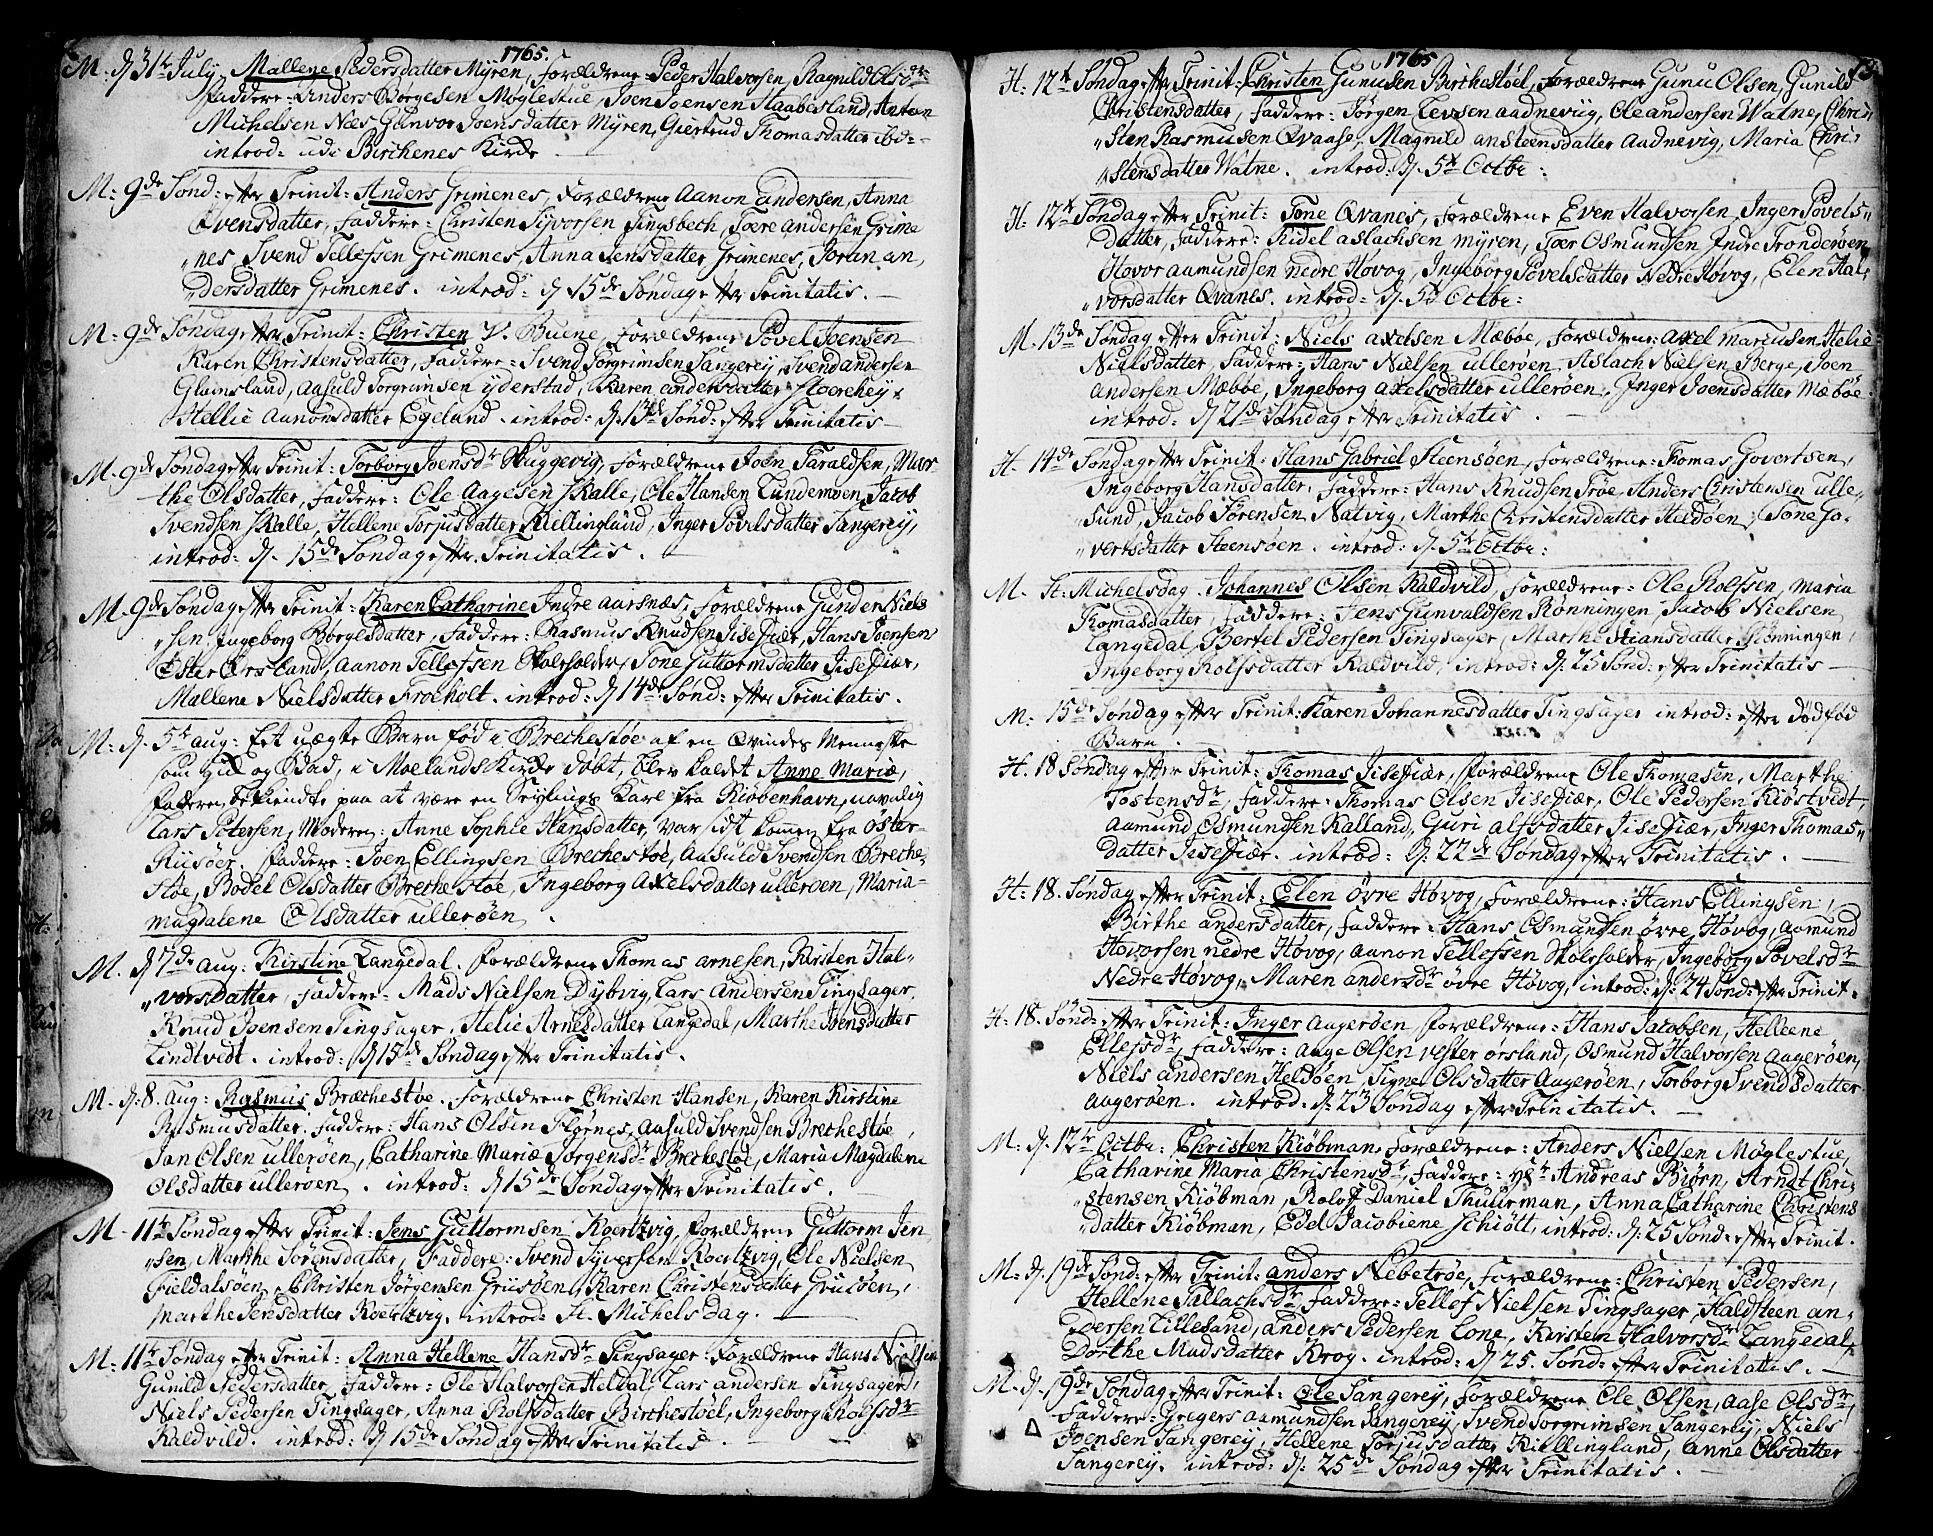 1765.
M: d 31te July, Mallene Pedersdatter Myren, Forældrene: Peder Halvorsen, Ragnild Olsdr
Faddere: Anders Børgesen Møglestue, Joen Joensen Haabesland, Anton
Michelsen Næs Gunvor Joensdatter Myren, Giertrud Thomasdatter ibd:
introd: udi Birchenes Kirke
M: 9de Sønd: efter Trinit: Anders Grimenes, Forældrene Aanon Andersen, Anna
Evensdatter, Faddere: Christen Syvorsen Tingsbech, Toere Andersen Grime
nes Svend Tellefsen Grimenes, Anna Jensdatter Grimenes, Joran An,
dersdatter Grimenes. introd: d 15de Søndag efter Trinitatis.
M: 9de Søndag efter Trinit: Christen V. Buene, Forældrene Povel Joensen
Karen Christensdatter, Faddere: Svend Torgrimsen Sangerey, Svend Andersen
Glamsland, Aasuld Torgrimsen Yderstad, Karen Andersdatter
Hellie Aanonsdatter Egeland. introd: d. 13de Sønd: efter Trinitatis
M: 9de Søndag efter Trinit: Torborg Joensdr Skuggevig, Forældrene Joen Taraldsen, Mar
the Olsdatter, Faddere: Ole Aagesen Skalle, Ole Hansen Tundemoen, Jacob
Svendsen Skalle, Hellene Torjusdatter Kiellingland, Inger Povelsdatter Sangerey,
introd: d. 15de Søndag efter Trinitatis.
M: 9de Søndag efter Trinit: Karen Catharine Indre Aarsnæs, Forældrene Gunder Niels
sen Ingeborg Børgesdatter, Faddere: Rasmus Knudsen Isefiær, Hans Joensen
Øster Ørsland, Aanon Tellefsen Skoleholder, Tone Guttormsdatter Isefiær,
Mallene Nielsdatter Froeholt. introd: d 14de Sønd: efter Trinitatis.
M: d. 5te Aug: Eet uægte Barn fød i Brechestøe af en Qvindes Menneske
som Hiul og Bad, i Moelands Kirke døbt, blev kaldet Anne Maria,
Faderen bekiendte paa at være en Seylings Karl fra Kiøbenhavn, navnlig
Lars Petersen, Moderen: Anne Sophie Hansdatter, var sidt kommen fra Øster-
Riisøer. Faddere: Joen Ellingsen Brechestøe, Aasuld Svendsen Breche-
støe, Bodel Olsdatter Brechestøe, Ingeborg Axelsdatter Ullerøen, Maria-
Magdalene Olsdatter Ullerøen.
M. d 7de Aug: Kirstine Langedal. Forældrene Thomas Arnesen, Kirsten Hal-
vorsdatter, Faddere: Mads Nielsen Dybvig, Lars Andersen Tingsager,
Knud Joensen Tingsager, Helie Arnesdatter Langedal, Marthe Joensdatter
Lindtvedt. introd: d 15de Søndag efter Trinitatis.
M. d: 8. Aug: Rasmus Brechestøe. Forældrene Christen Hansen, Karen Kirstine
Rasmusdatter, Faddere: Hans Olsen Fløsnes, Aasuld Svendsen Brechestøe,
Jan Olsen Ullerøen, Catharine Maria Jørgensdr Brechestøe, Maria Magdalene
Olsdatter Ullerøen. introd: d 15de Søndag efter Trinitatis.
M- 11te Søndag efter Trinit: Jens Guttormsen Koertzvig, Forældrene Guttorm Jen
sen, Marthe Sørensdatter, Faddere: Svend Syversen Koertzvig, Ole Nielsen
Fieldalsøen, Christen Jørgensen Griisøen, Karen Christensdatter Griisøen,
Marthe Jensdatter Koertzvig. introd: St Michels Dag.
M: 11te Søndag efter Trinit: Anna Hellene Hansdr Tingsager. Forældrene Hans Nielsen
Gunild Pedersdatter, Faddere: Ole Halvorsen Heldal, Lars Andersen Tingsager,
Niels Pedersen Tingsager, Anna Rolfsdatter Birchestøel, Ingeborg Rolfsdr
Kaldvild. introd: d 15de Søndag efter Trinitatis
1765
H. 12te Søndag efter Trinit: Christen Gunusen Birchestøel, Forældrene Gunu Olsen, Gunild
Christensdatter, Faddere: Jørgen Levsen Aadneviig, Ole Andersen Watne, Chri-
sten Rasmusen Qvaase, Magnild Ansteensdatter Aadnevig, Maria Chri-
stensdatter Watne. introd: d. 5te Octbr:
H. 12te Søndag efter Trinit: Tone Qvanes, Forældrene Even Halvorsen, Inger Povels
datter, Faddere: Kidel Aslachsen Myren, Toer Osmundsen Indre Tronderøen
Hovor Aamundsen Nedre Høvog, Ingeborg Povelsdatter Nedre Høvog, Elen Hal-
vorsdatter Qvanes. introd: d. 5te Octbr:
M. 13de Søndag efter Trinit: Niels Axelsen Mæbøe, Forældrene: Axel Marcusen Helie
Nielsdatter, Faddere: Hans Nielsen Ullerøen, Aslach Nielsen Berge, Joen
Andersen Mæbøe, Ingeborg Axelsdatter Ullerøen, Inger Joensdatter Mæbøe.
introd: d 21de Søndag efter Trinitatis.
H. 14de Søndag efter Trinit: Hans Gabriel Steensøen, Forældrene: Thomas Govertsen,
Ingeborg Hansdatter. Faddere: Hans Knudsen Trøe, Anders Christensen Ulle-
sund, Jacob Sørensen Natvig, Marthe Christensdatter Heldøen, Tone Go-
vertsdatter Steensøen. introd: d. 5te Octbr:
M. St. Michelsdag. Johannes Olsen Kaldvild, Forældrene: Ole Rolfsen, Maria
Thomasdatter, Faddere: Jens Gunvaldsen Rønningen, Jacob Nielsen
Langedal, Bertel Pedersen Tingsager, Marthe Hansdatter Rønningen,
Ingeborg Rolfsdatter Kaldvild, introd: d: 25 Sønd: efter Trinitatis
M: 15de Søndag efter Trinit: Karen Johannesdatter Tingsager introd: efter Dødfød
Barn.
H. 18 Søndag efter Trinit: Thomas Isefiær, Forældrene Ole Thomasen, Marthe
Tostensdr, Faddere: Thomas Olsen Isefiær, Ole Pedersen Kiøstvedt,
Aamund Osmundsen Kalland, Guri Alfsdatter Isefiær, Inger Thomas
datter Isefiær. introd: d: 22de Søndag efter Trinitatis.
H: 18. Søndag efter Trinit: Elen Øvre Høvog, Forældrene: Hans Ellingsen,
Birthe Andersdatter, Faddere: Hans Osmundsen Øvre Høvog, Aamund
Hovorsen Nedre Høvog, Aanon Tellefsen Skoleholder, Ingeborg Povelsdr
Nedre Høvog, Maren Andersdr Øvre Høvog, introd: d: 24 Sønd: efter Trinit.
H. 18. Sønd: efter Trinit: Inger Aagerøen Forældrene: Hans Jacobsen, Helleene
Ellefsdr, Faddere: Aage Olsen Vester Ørsland, Osmund Halvorsen Aagerøen,
Niels Andersen Heldøen, Signe Olsdatter Aagerøen, Torborg Svendsdatter
Aagerøen. introd: d: 23 Søndag efter Trinitatis.
M: d: 12te Octbr: Christen Kiøbman, Forældrene: Anders Nielsen Møglestue,
Catharine Maria Christensdr, Faddere: Andreas Biørn, Arndt Chri-
stensen Kiøbman, Rolof Daniel Thuurman, Anna Catharine Christens
datter Kiøbman, Edel Jacobiene Schiøtt, introd: d: 25 Sønd: efter Trinit.
M: d. 19de Sønd: efter Trinit: Anders Nebetrøe, Forældrene: Christen Pedersen,
Hellene Tallachsdr Faddere: Tellof Nielsen Tingsager, Haldsteen An-
dersen Lillesand, Anders Pedersen Lone, Kirsten Halvorsdr Langedal,
Dorthe Madsdatter Krog. introd: d 25. Sønd: efter Trinitatis.
M. d. 19de Søndag efter Trinit: Ole Sangerey, Forældrene Ole Olsen, Aase Olsdr,
Faddere: Gregers Aamundsen Sangerey, Svend Torgrimsen Sangerey, Niels
Joensen Sangerey, Hellene Torjusdatter Kiellingland, Anne Olsdatter
Sangerey. introd: d: 25de Søndag efter Trinitatis.